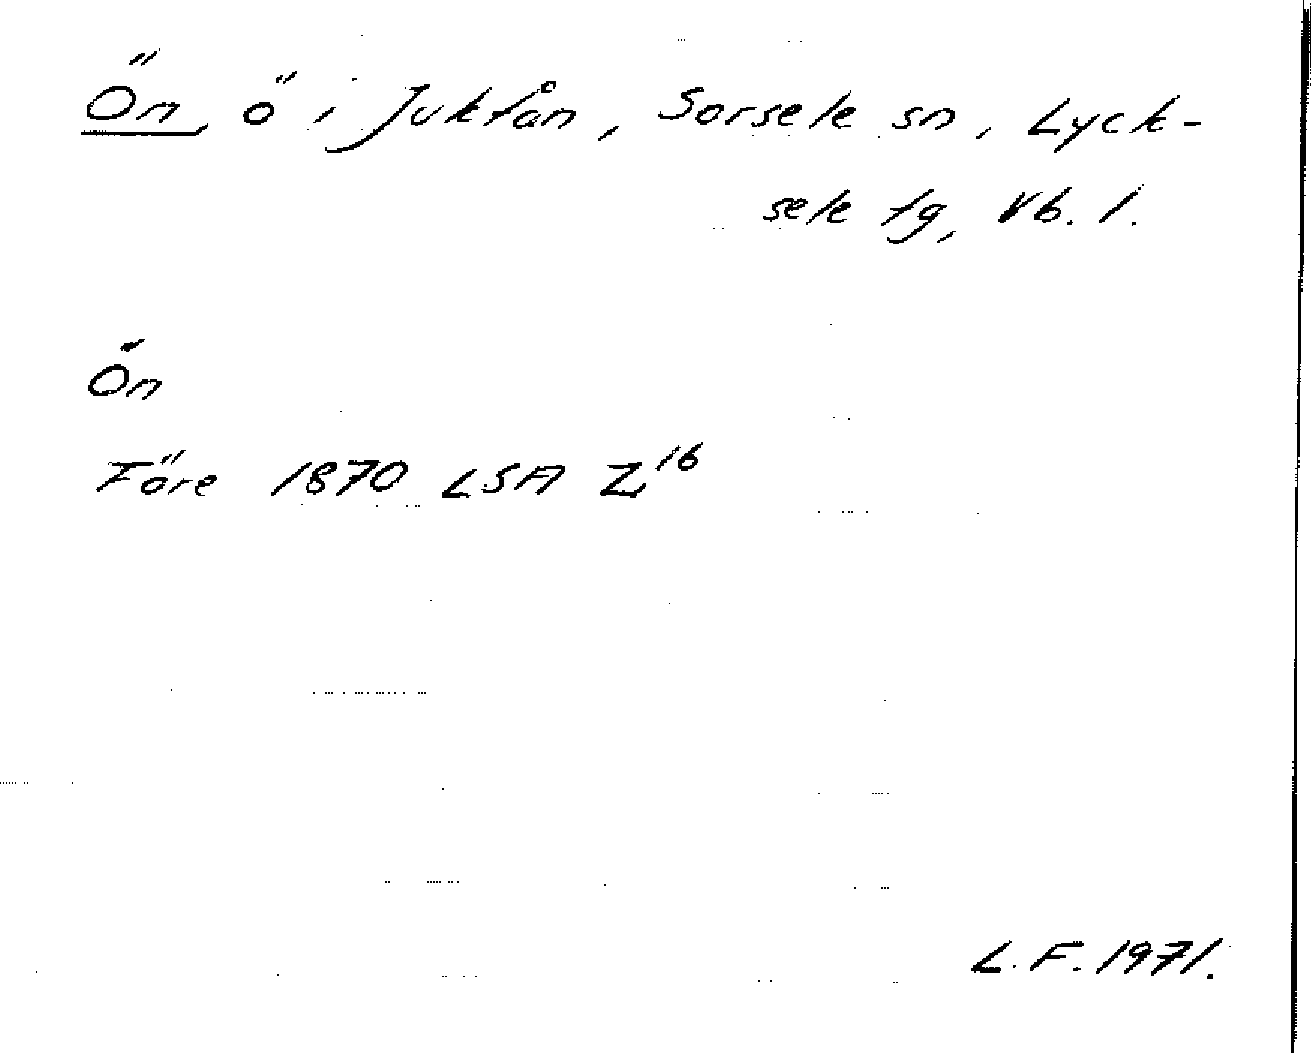 Ön, ö i Juktån, Sorsele sn, Lyck-
sele tg, Vb. l.
Ön
Före 1870 LSA Z16
L. F. 1971.